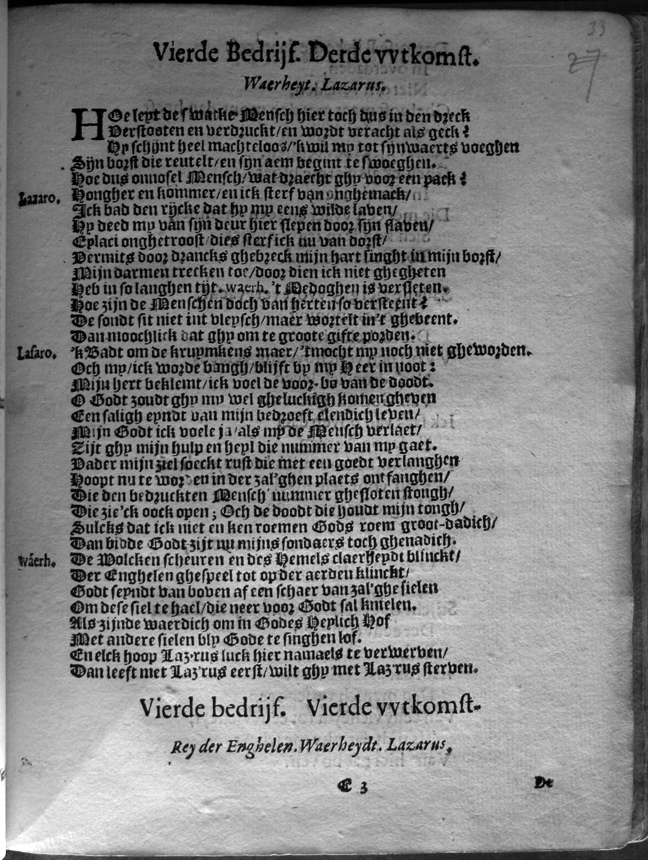 33
27
Vierde Bedrijf. Derde vvtkomst.
Waerheyt. Lazarus.
HOe leyt de swacke Mensch hier toch dus in den dreck
Verstooten en verdruckt/en wordt veracht als geck?
Hy schijnt heel machteloos/'k wil my tot sijnwaerts voeghen
Sijn borst die reutelt/en sijn aem begint te swoeghen.
Hoe dus onnosel Mensch/wat draecht ghy voor een pack?
Lazaro. Hongher en kommer/en ick sterf van onghemack/
Ick bad den rijcke dat hy my eens wilde laven/
Hy deed my van sijn deur hier slepen door sijn slaven/
Eplaci onghetroost/dies sterf ick nu van dorst/
Vermits door drancks ghebreck mijn hart singht in mijn borst/
Mijn darmen trecken toe/door dien ick niet ghegheten
Heb in so langhen tijt. waerh. 't Medoghen is versleten.
Hoe zijn de Menschen doch van herten so versteent?
De sondt sit niet int vleysch/maer wortelt in't ghebeent.
Dan moochlick dat ghy om te groote gifte porden.
Lasaro. 'k Badt om de kruymkens maer/'tmocht my noch niet gheworden.
Och my/ick worde bangh/blijft by my Heer in noot:
Mijn hert beklemt/ick voel de voor-bo van de doodt.
O Godt zoudt ghy my wel gheluckigh komen gheven
Een saligh eyndt van mijn bedroeft elendich leven/
Mijn Godt ick voele ja/als my de Mensch verlaet/
Zijt ghy mijn hulp en heyl die nummer van my gaet.
Vader mijn ziel soeckt rust die met een goedt verlanghen
Hoopt nu te worden in der zal'ghen plaets ontfanghen/
Die den bedruckten Mensch nummer ghesloten stongh/
Die zie'ck oock open; Och de doodt die houdt mijn tongh/
Sulcks dat ick niet en ken roemen Gods roem groot-dadich/
Dan bidde Godt zijt nu mijns sondaers toch ghenadich.
Wáerh. De Wolcken scheuren en des Hemels claerheydt blinckt/
Der Enghelen ghespeel tot op der aerden klinckt/
Godt seyndt van boven af een schaer van zal'ghe sielen
Om dese siel te hael/die neer voor Godt sal knielen.
Als zijnde waerdich om in Godes Heylich Hof
Met andere sielen bly Gode te singhen lof.
En elck hoop Laz'rus luck hier namaels te verwerven/
Dan leeft met Laz'rus eerst/wilt ghy met Laz'rus sterven.
Vierde bedrijf. Vierde vvtkomst.
Rey der Enghelen. Waerheydt. Lazarus.
E 3
De